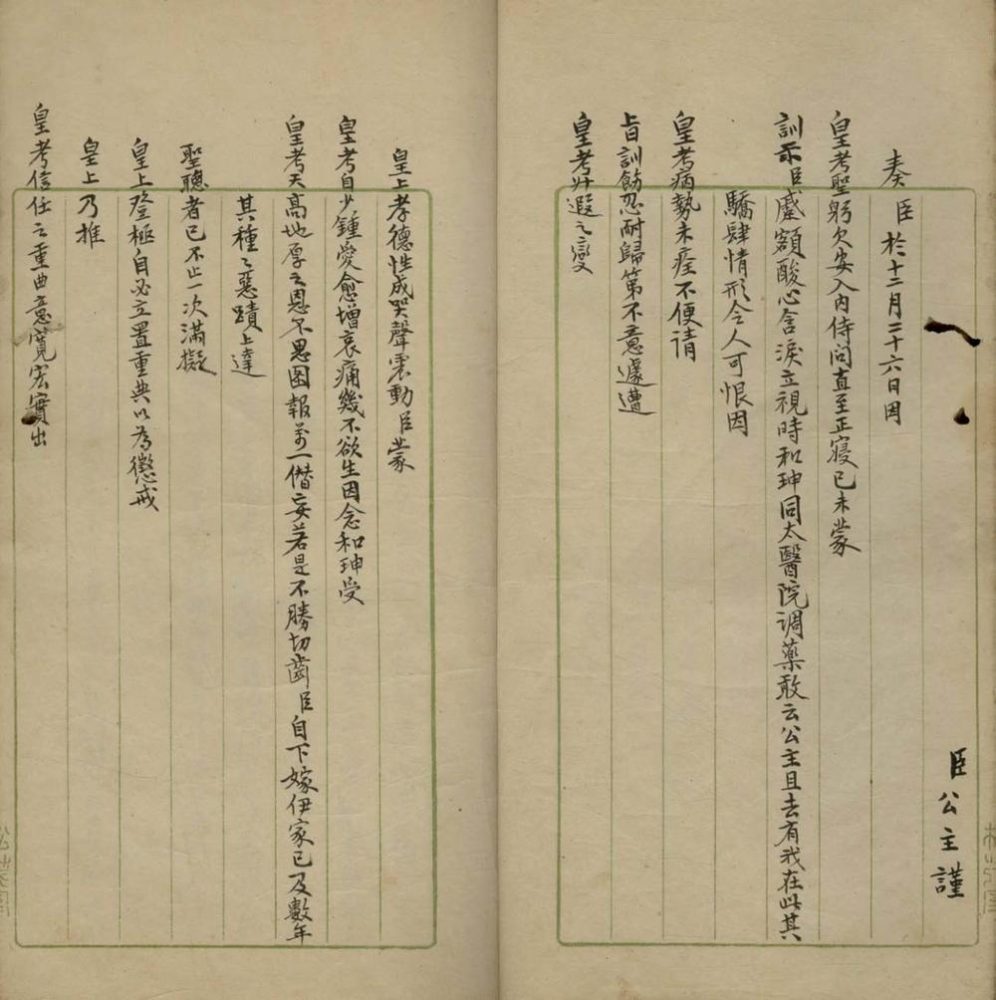 臣公主謹
奏臣於十二月二十六日因
皇考聖躬欠安入內侍问直至正寢已未蒙
訓示臣蹙額酸心含淚立視時和珅同太醫院调藥敢云公主且去有我在此其
驕肆情形令人可恨因
皇考病勢未痊不便請
旨訓飭忍耐歸第不意遽遭
皇考升遐之變
皇上孝德性成哭聲震動臣蒙
皇考自少鍾愛愈增哀痛幾不欲生因念和珅受
皇考天高地厚之恩不思图報萬一僭妄若是不勝切齒臣自下嫁伊家已及數年
其種々惡蹟上達
聖聽者已不止一次滿擬
皇上登極自必立置重典以為懲戒
皇上乃推
皇考信任之重曲意寬宏實出